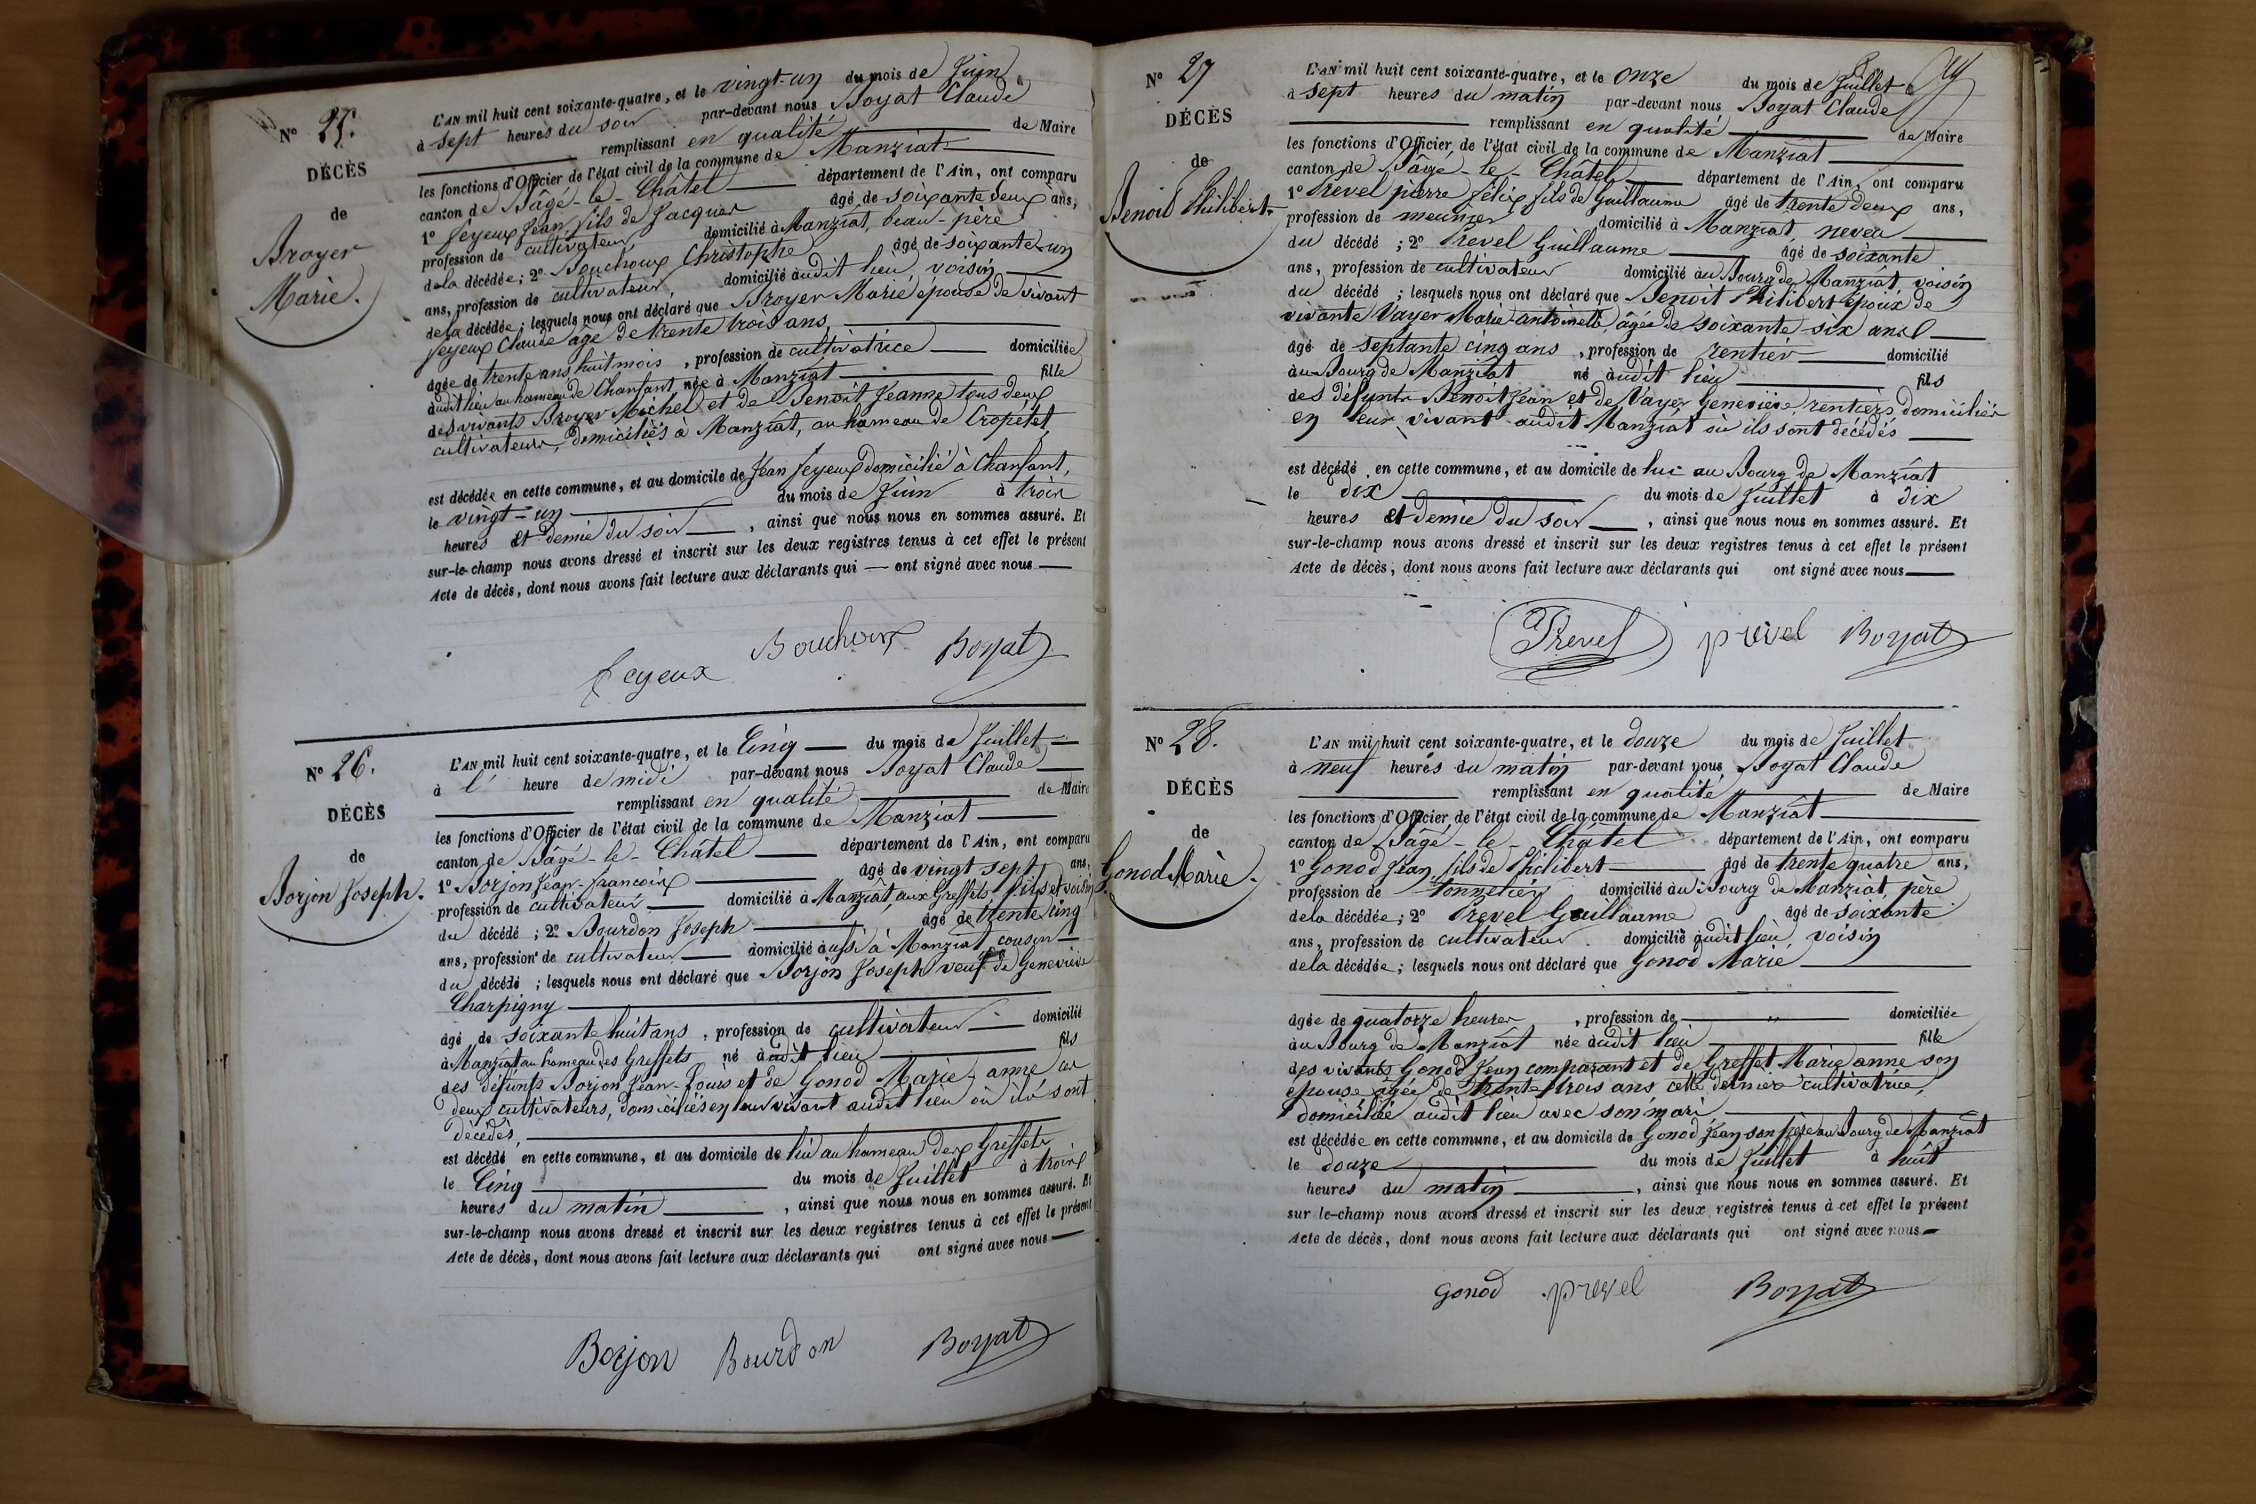 N° 25.
DÉCÈS
de
Broyer
Marie.
L'AN mil huit cent soixante-quatre, et le vingt-un du mois de Juin
à sept heures du soir par-devant nous Boyat Claude
remplissant en qualité de Maire
les fonctions d'Officier de l'état civil de la commune de Manziat
canton de Bâgé-le-Châtel département de l'Ain, ont comparu
1° Feyeux Jean, fils de Jacques âgé de soixante deux ans,
profession de cultivateur domicilié à Manziat, beau-père
de la décédée; 2° Bouchoux Christophe âgé de soixante un
ans, profession de cultivateur, domicilié audit lieu, voisin
de la décédée; lesquels nous ont déclaré que Broyer Marie épouse de vivant
Feyeux Claude âgé de trente trois ans,
âgée de trente ans huit mois, profession de cultivatrice domiciliée
audit lieu au hameau de Chanfant née à Manziat fille
des vivants Broyer Michel et de Benoit Jeanne tous deux
cultivateurs, domiciliés à Manziat, au hameau de Cropétet
est décédée en cette commune, et au domicile de Jean Feyeux domicilié à Chanfant,
le vingt-un du mois de Juin à trois
heures et demie du soir, ainsi que nous nous en sommes assuré. Et
sur-le-champ nous avons dressé et inscrit sur les deux registres tenus à cet effet le présent
Acte de décès, dont nous avons fait lecture aux déclarants qui — ont signé avec nous
Bouchoux Boyat
Feyeux
N° 26.
DÉCÈS
de
Borjon Joseph.
L'AN mil huit cent soixante-quatre, et le Cinq du mois de Juillet
à l' heure de midi par-devant nous Boyat Claude
remplissant en qualité de Maire
les fonctions d'Officier de l'état civil de la commune de Manziat
canton de Bâgé-le-Châtel département de l'Ain, ont comparu
1° Borjon Jean-françois âgé de vingt sept ans,
profession de cultivateur domicilié à Manziat, aux Greffets, fils et voisin
du décédé; 2° Bourdon Joseph âgé de trente cinq
ans, profession de cultivateur domicilié aussi à Manziat, cousin
du décédé; lesquels nous ont déclaré que Borjon Joseph veuf de Geneviève
Charpigny
âgé de soixante huit ans, profession de cultivateur domicilié
à Manziat au hameau des Greffets né audit lieu fils
des défunts Borjon Jean-Louis et de Gonod Marie-anne ces
deux cultivateurs, domiciliés en leur vivant audit lieu où ils sont
décédés,
est décédé en cette commune, et au domicile de lui au hameau des Greffets
le Cinq du mois de Juillet à trois
heures du matin, ainsi que nous nous en sommes assuré. Et
sur-le-champ nous avons dressé et inscrit sur les deux registres tenus à cet effet le présent
Acte de décès, dont nous avons fait lecture aux déclarants qui ont signé avec nous
Borjon Bourdon Boyat
N° 27
DÉCÈS
de
Benoit Philibert.
L'AN mil huit cent soixante-quatre, et le onze du mois de Juillet
à sept heures du matin par-devant nous Boyat Claude
remplissant en qualité de Maire
les fonctions d'Officier de l'état civil de la commune de Manziat
canton de Bâgé-le-Châtel département de l'Ain, ont comparu
1° Prevel pierre félix fils de Guillaume âgé de trente deux ans,
profession de meunier domicilié à Manziat, neveu
du décédé; 2° Prevel Guillaume âgé de soixante
ans, profession de cultivateur domicilié au Bourg de Manziat, voisin
du décédé; lesquels nous ont déclaré que Benoit Philibert époux de
vivante Vayer Marie-antoinette âgée de soixante-six ans
âgé de septante cinq ans, profession de rentier domicilié
au Bourg de Manziat né audit lieu fils
des défunts Benoit Jean et de Vayer Geneviève, rentiers, domiciliés
en leur vivant audit Manziat où ils sont décédés
est décédé en cette commune, et au domicile de lui au Bourg de Manziat
le dix du mois de Juillet à dix
heures et demie du soir, ainsi que nous nous en sommes assuré. Et
sur-le-champ nous avons dressé et inscrit sur les deux registres tenus à cet effet le présent
Acte de décès, dont nous avons fait lecture aux déclarants qui ont signé avec nous
Prevel prevel Boyat
N° 28.
DÉCÈS
de
Gonod Marie.
L'AN mil huit cent soixante-quatre, et le douze du mois de Juillet
à neuf heures du matin par-devant nous Boyat Claude
remplissant en qualité de Maire
les fonctions d'Officier de l'état civil de la commune de Manziat
canton de Bâgé-le-Châtel département de l'Ain, ont comparu
1° Gonod Jean, fils de Philibert âgé de trente quatre ans,
profession de tonnelier domicilié au Bourg de Manziat, père
de la décédée; 2° Prevel Guillaume âgé de soixante
ans, profession de cultivateur domicilié audit lieu, voisin
de la décédée; lesquels nous ont déclaré que Gonod Marie
âgée de quatorze heures, profession de " domiciliée
au Bourg de Manziat née audit lieu fille
des vivants Gonod Jean comparant et de Greffet Marie anne son
épouse âgée de trente trois ans cette dernière cultivatrice,
domiciliée audit lieu avec son mari
est décédée en cette commune, et au domicile de Gonod Jean son père au Bourg de Manziat
le douze du mois de Juillet à huit
heures du matin, ainsi que nous nous en sommes assuré. Et
sur le-champ nous avons dressé et inscrit sur les deux registres tenus à cet effet le présent
Acte de décès, dont nous avons fait lecture aux déclarants qui ont signé avec nous
Gonod prevel Boyat